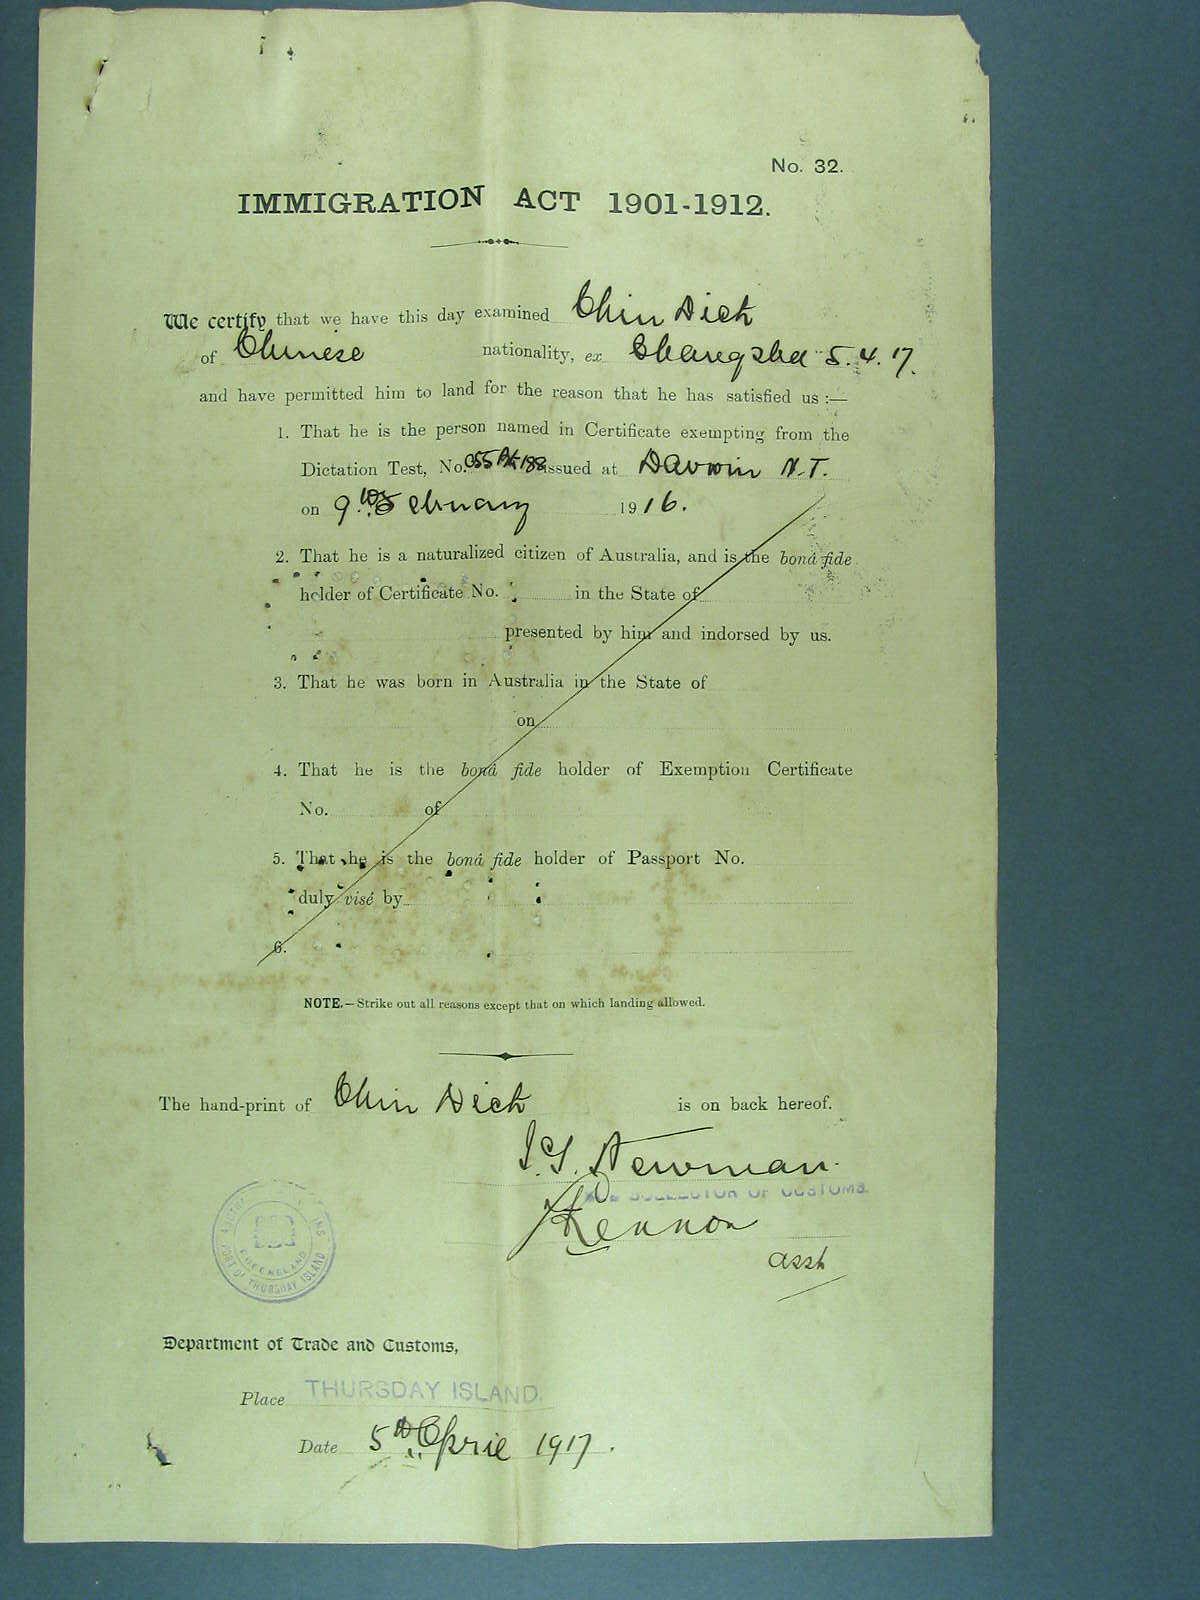 No. 32.
IMMIGRATION ACT 1901-1912.
We certify that we have this day examined Chin Dick
of Chinese nationality, ex Changsha 5.4.17.
and have permitted him to land for the reason that he has satisfied us :—
1. That he is the person named in Certificate exempting from the
Dictation Test, No. 055 Bk 188 issued at Darwin N.T.
on 9th February 1916.
2. That he is a naturalized citizen of Australia, and is the bonâ fide
holder of Certificate No. in the State of
presented by him and indorsed by us.
3. That he was born in Australia in the State of
on
4. That he is the bonâ fide holder of Exemption Certificate
No. of
5. That he is the bonâ fide holder of Passport No.
duly visé by
6.
NOTE.—Strike out all reasons except that on which landing allowed.
The hand-print of Chin Dick is on back hereof.
Newman
COLLECTOR OF CUSTOMS.
Lennon
Asst
PORT OF THURSDAY ISLAND
QUEENSLAND
Department of Trade and Customs,
Place THURSDAY ISLAND.
Date 5th April 1917.